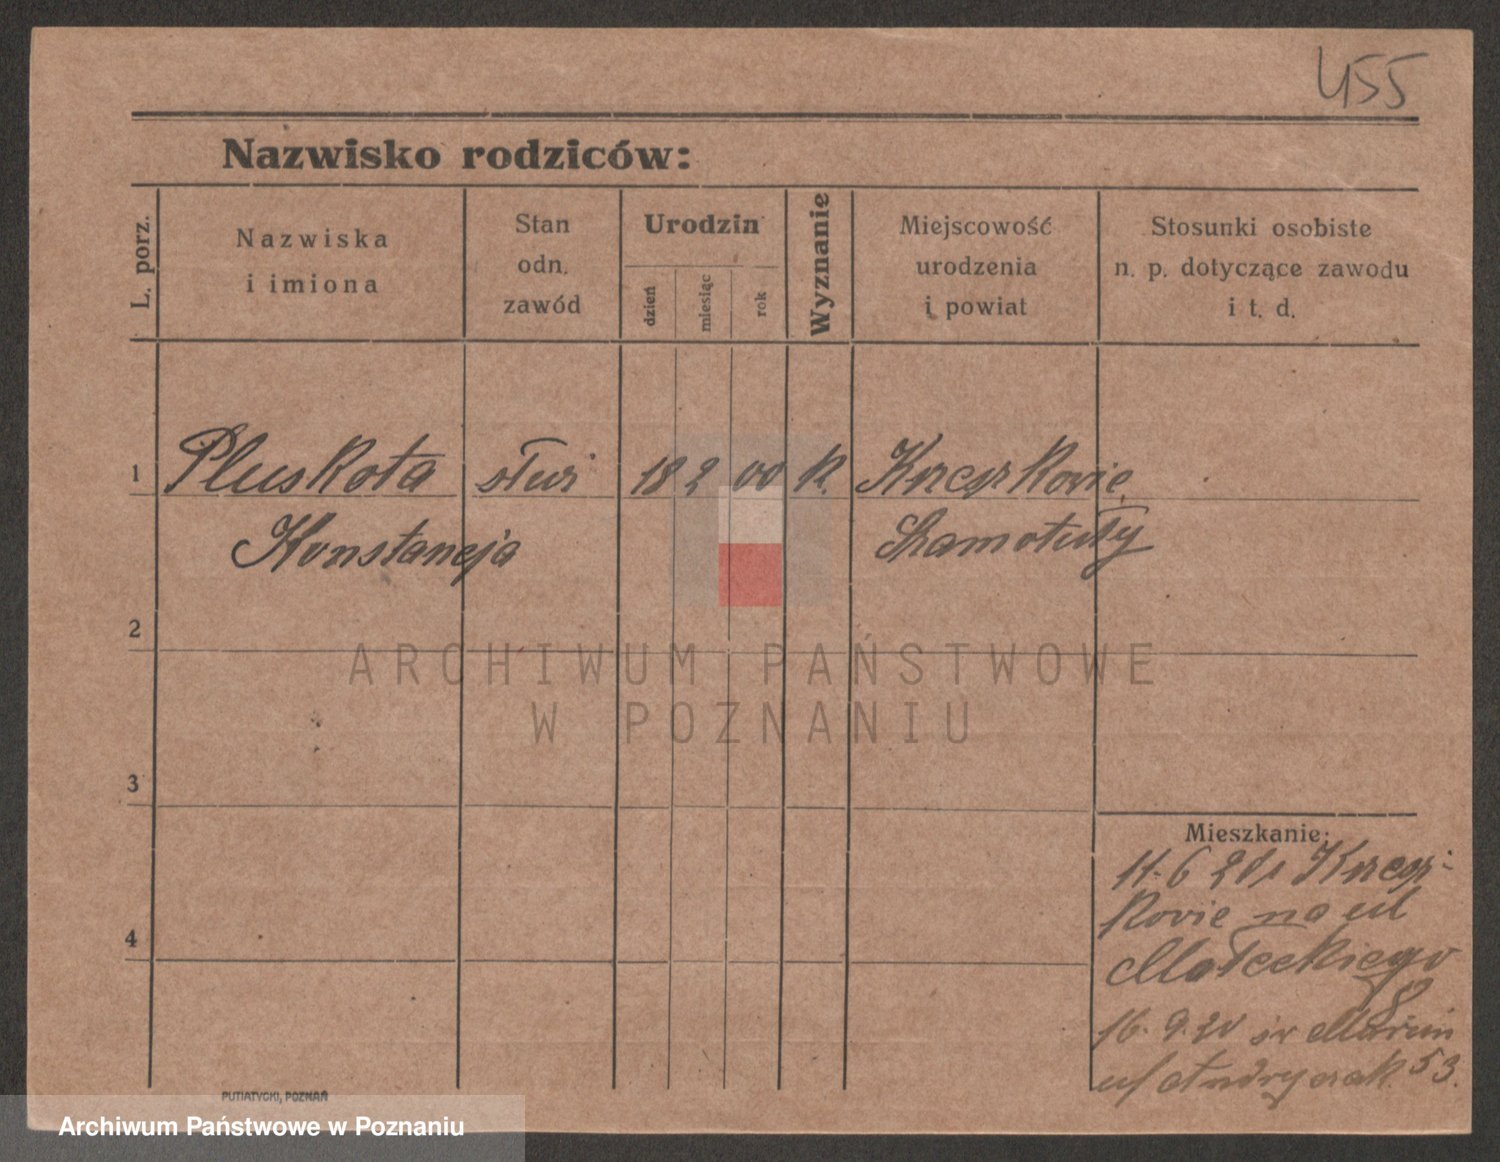 455
Nazwisko rodziców:
L. porz.
Nazwiska
i imiona
Stan
odn.
zawód
Urodzin
dzień
miesiąc
rok
Wyznanie
Miejscowość
urodzenia
i powiat
Stosunki osobiste
n. p. dotyczące zawodu
i t. d.
1 Pluskota służ 18 2 00 k.
Konstancja Szamotuły
2
ARCHIWUM PAŃSTWOWE
W POZNANIU
3
Mieszkanie:
11.6 20
na ul
4
Małeckiego
8
16.9.20 św Marcin
53.
PUTIATYCKI, POZNAŃ
Archiwum Państwowe w Poznaniu